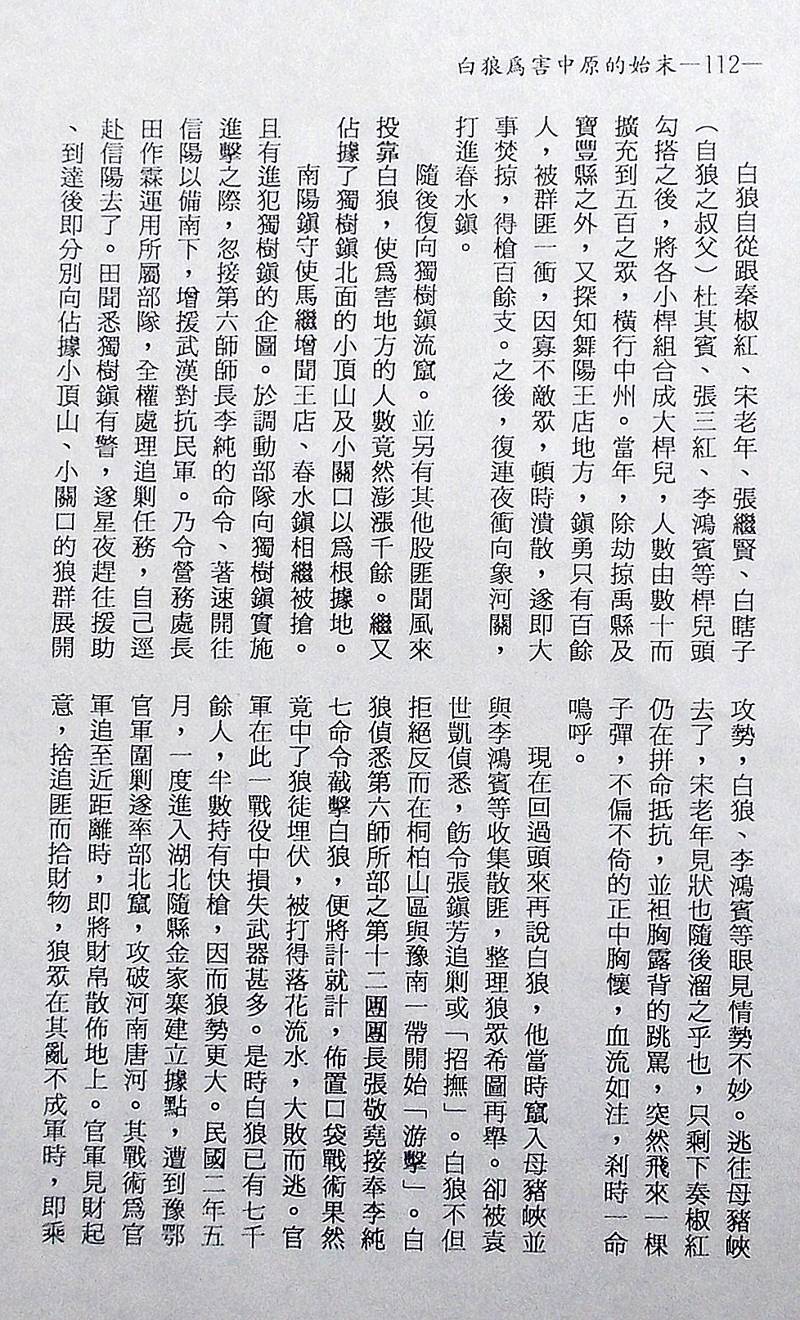 白狼爲害中原的始末—112—
白狼自從跟秦椒紅、宋老年、張繼賢、白瞎子
（自狼之叔父）杜其賓、張三紅、李鴻賓等桿兒頭
勾搭之後，將各小桿組合成大桿兒，人數由數十而
擴充到五百之眾，橫行中州。當年，除劫掠禹縣及
寶豐縣之外，又探知舞陽王店地方，鎮勇只有百餘
人，被群匪一衝，因寡不敵眾，頓時潰散，遂即大
事焚掠，得槍百餘支。之後，復連夜衝向象河關，
打進春水鎮。
隨後復向獨樹鎮流竄。並另有其他股匪聞風來
投靠白狼，使爲害地方的人數竟然澎漲千餘。繼又
佔據了獨樹鎮北面的小頂山及小關口以爲根據地。
南陽鎮守使馬繼增聞王店、春水鎮相繼被搶。
且有進犯獨樹鎮的企圖。於調動部隊向獨樹鎮實施
進擊之際，忽接第六師師長李純的命令、著速開往
信陽以備南下，增援武漢對抗民軍。乃令營務處長
田作霖運用所屬部隊，全權處理追剿任務，自己逕
赴信陽去了。田聞悉獨樹鎮有警，遂星夜趕往援助
、到達後即分別向佔據小頂山、小關口的狼群展開
攻勢，白狼、李鴻賓等眼見情勢不妙。逃往母豬峽
去了，宋老年見狀也隨後溜之乎也，只剩下奏椒紅
仍在拼命抵抗，並袒胸露背的跳罵，突然飛來一棵
子彈，不偏不倚的正中胸懷，血流如注，剎時一命
嗚呼。
現在回過頭來再說白狼，他當時竄入母豬峽並
與李鴻賓等收集散匪，整理狼眾希圖再舉。卻被袁
世凱偵悉，飭令張鎮芳追剿或「招撫」。白狼不但
拒絕反而在桐柏山區與豫南一帶開始「游擊」。白
狼偵悉第六師所部之第十二團團長張敬堯接奉李純
七命令截擊白狼，便將計就計，佈置口袋戰術果然
竟中了狼徒埋伏，被打得落花流水，大敗而逃。官
軍在此一戰役中損失武器甚多。是時白狼已有七千
餘人，半數持有快槍，因而狼勢更大。民國二年五
月，一度進入湖北隨縣金家寨建立據點，遭到豫鄂
官軍圍剿遂率部北竄，攻破河南唐河。其戰術爲官
軍追至近距離時，即將財帛散佈地上。官軍見財起
意，捨追匪而拾財物，狼眾在其亂不成軍時，即乘